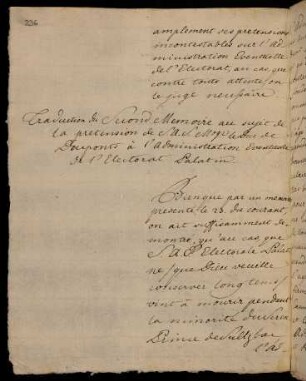 226
amplement ses pretensions
incontestables sur l'Ad-
ministration Eventuelle
de l'Electorat, au cas que
contre toute attente, on
le juge necessaire
Traduction du Second Memoire au sujet de
la pretension de S.A.S. Mgr le Duc de
Deuxponts à l'Administration Eventuelle
de l'Electorat Palatin
Bienque par un memoire
presenté le 23. du courant,
on ait suffisamment de-
montré, qu'au cas que
S.A.S Electorale Palat
ne (que Dieu veuille
conserver longtems)
vint à mourir pendant
la minorité du Sern
Prince de Sultzbac